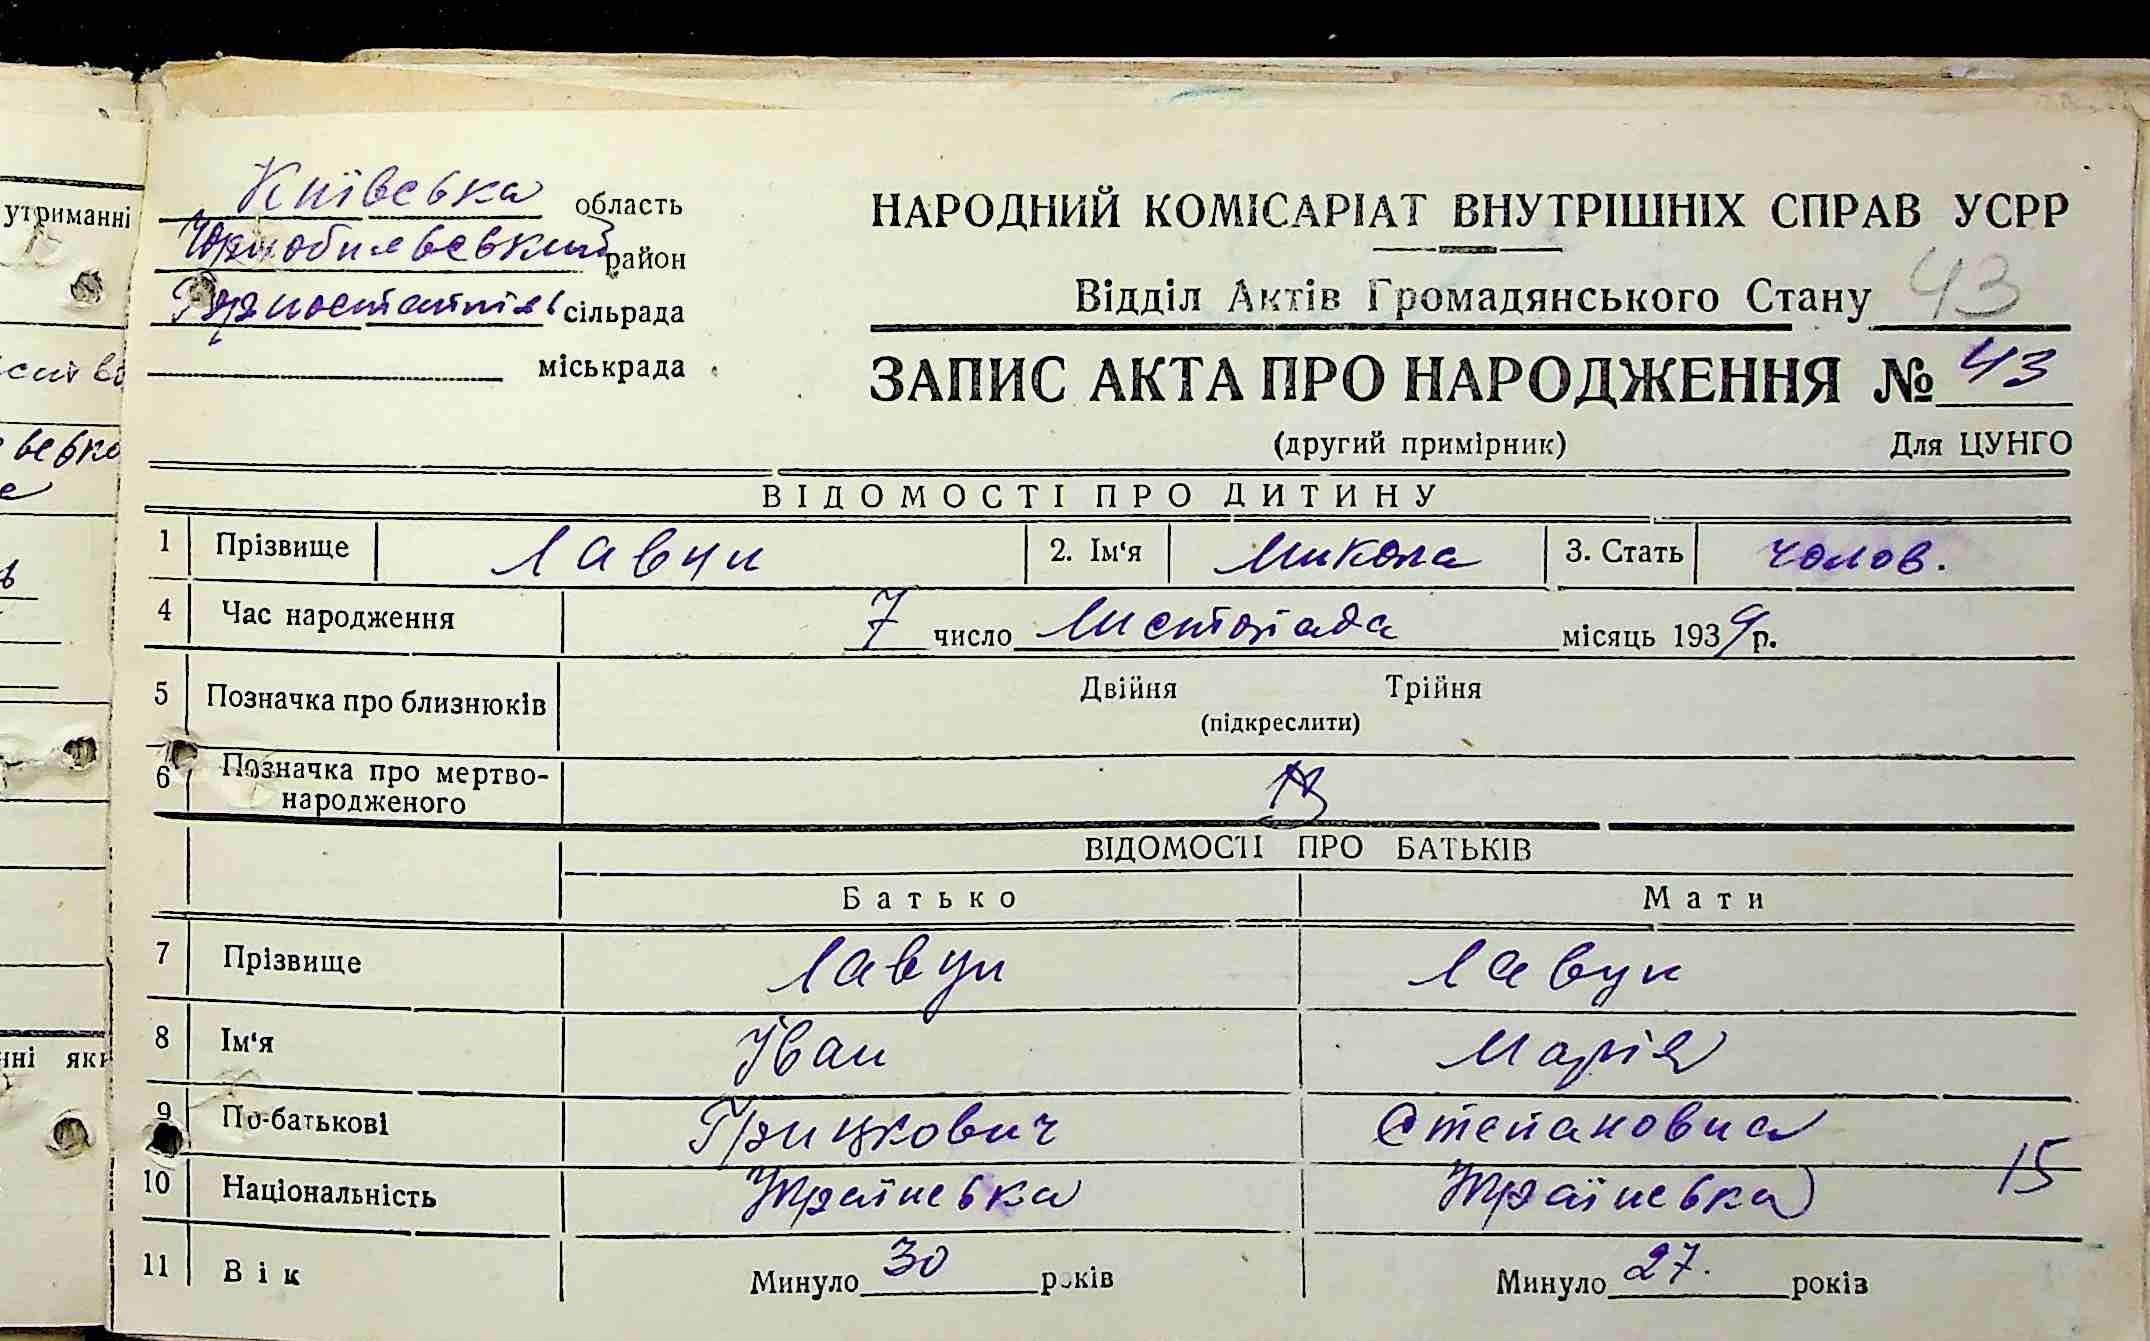 утриманні
Київська область
Чорнобильвський район
Горностайпіль сільрада
міськрада
НАРОДНИЙ КОМІСАРІАТ ВНУТРІШНІХ СПРАВ УСРР
Відділ Актів Громадянського Стану 43
ЗАПИС АКТА ПРО НАРОДЖЕННЯ № 43
(другий примірник) Для ЦУНГО
ВІДОМОСТІ ПРО ДИТИНУ
1 Прізвище 2. Ім‘я Микола 3. Стать чолов.
4 Час народження 7 число Листопада місяць 1939 р.
5 Позначка про близнюків Двійня Трійня
(підкреслити)
6 Позначка про мертво-
народженого
ВІДОМОСТІ ПРО БАТЬКІВ
Батько Мати
7 Прізвище
8 Ім‘я Іван Марія
9 По-батькові Грицкович Степановна
10 Національність Українська Українська 15
11 Вік Минуло 30 років Минуло 27. років